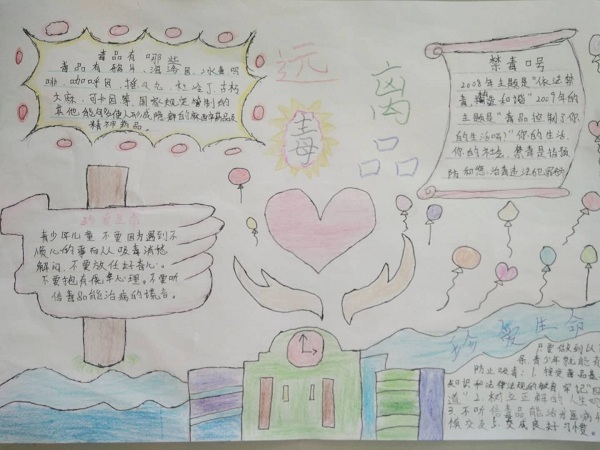 毒品有哪些
毒品有鸦片、海洛因、冰毒、吗
啡、咖啡因、摇头丸、杜冷丁、古柯
大麻、可卡因等,国家规定管制的
其他能够使人形成瘾癖的麻醉药品及
精神药品。
远
离
毒
品
禁毒口号
2008年主题是"依法禁
毒,构建和谐"2009年的
主题是"毒品控制了你
的生活吗?"你的生活,
你的社区,
珍爱生命
青少年儿童不要因为遇到不
顺心的事而从吸毒消愁
解闷,不要放任好奇心。
不要抱有侥幸心理。不要听
信毒品能治病的谎言。
珍爱生命
只要做到以
青少年就能有
防止吸毒:1.接受毒品基
知识和法律法规的教育
道"2.树立正确的人生
3.不听信毒品能治百病
慎交友
良好习惯。